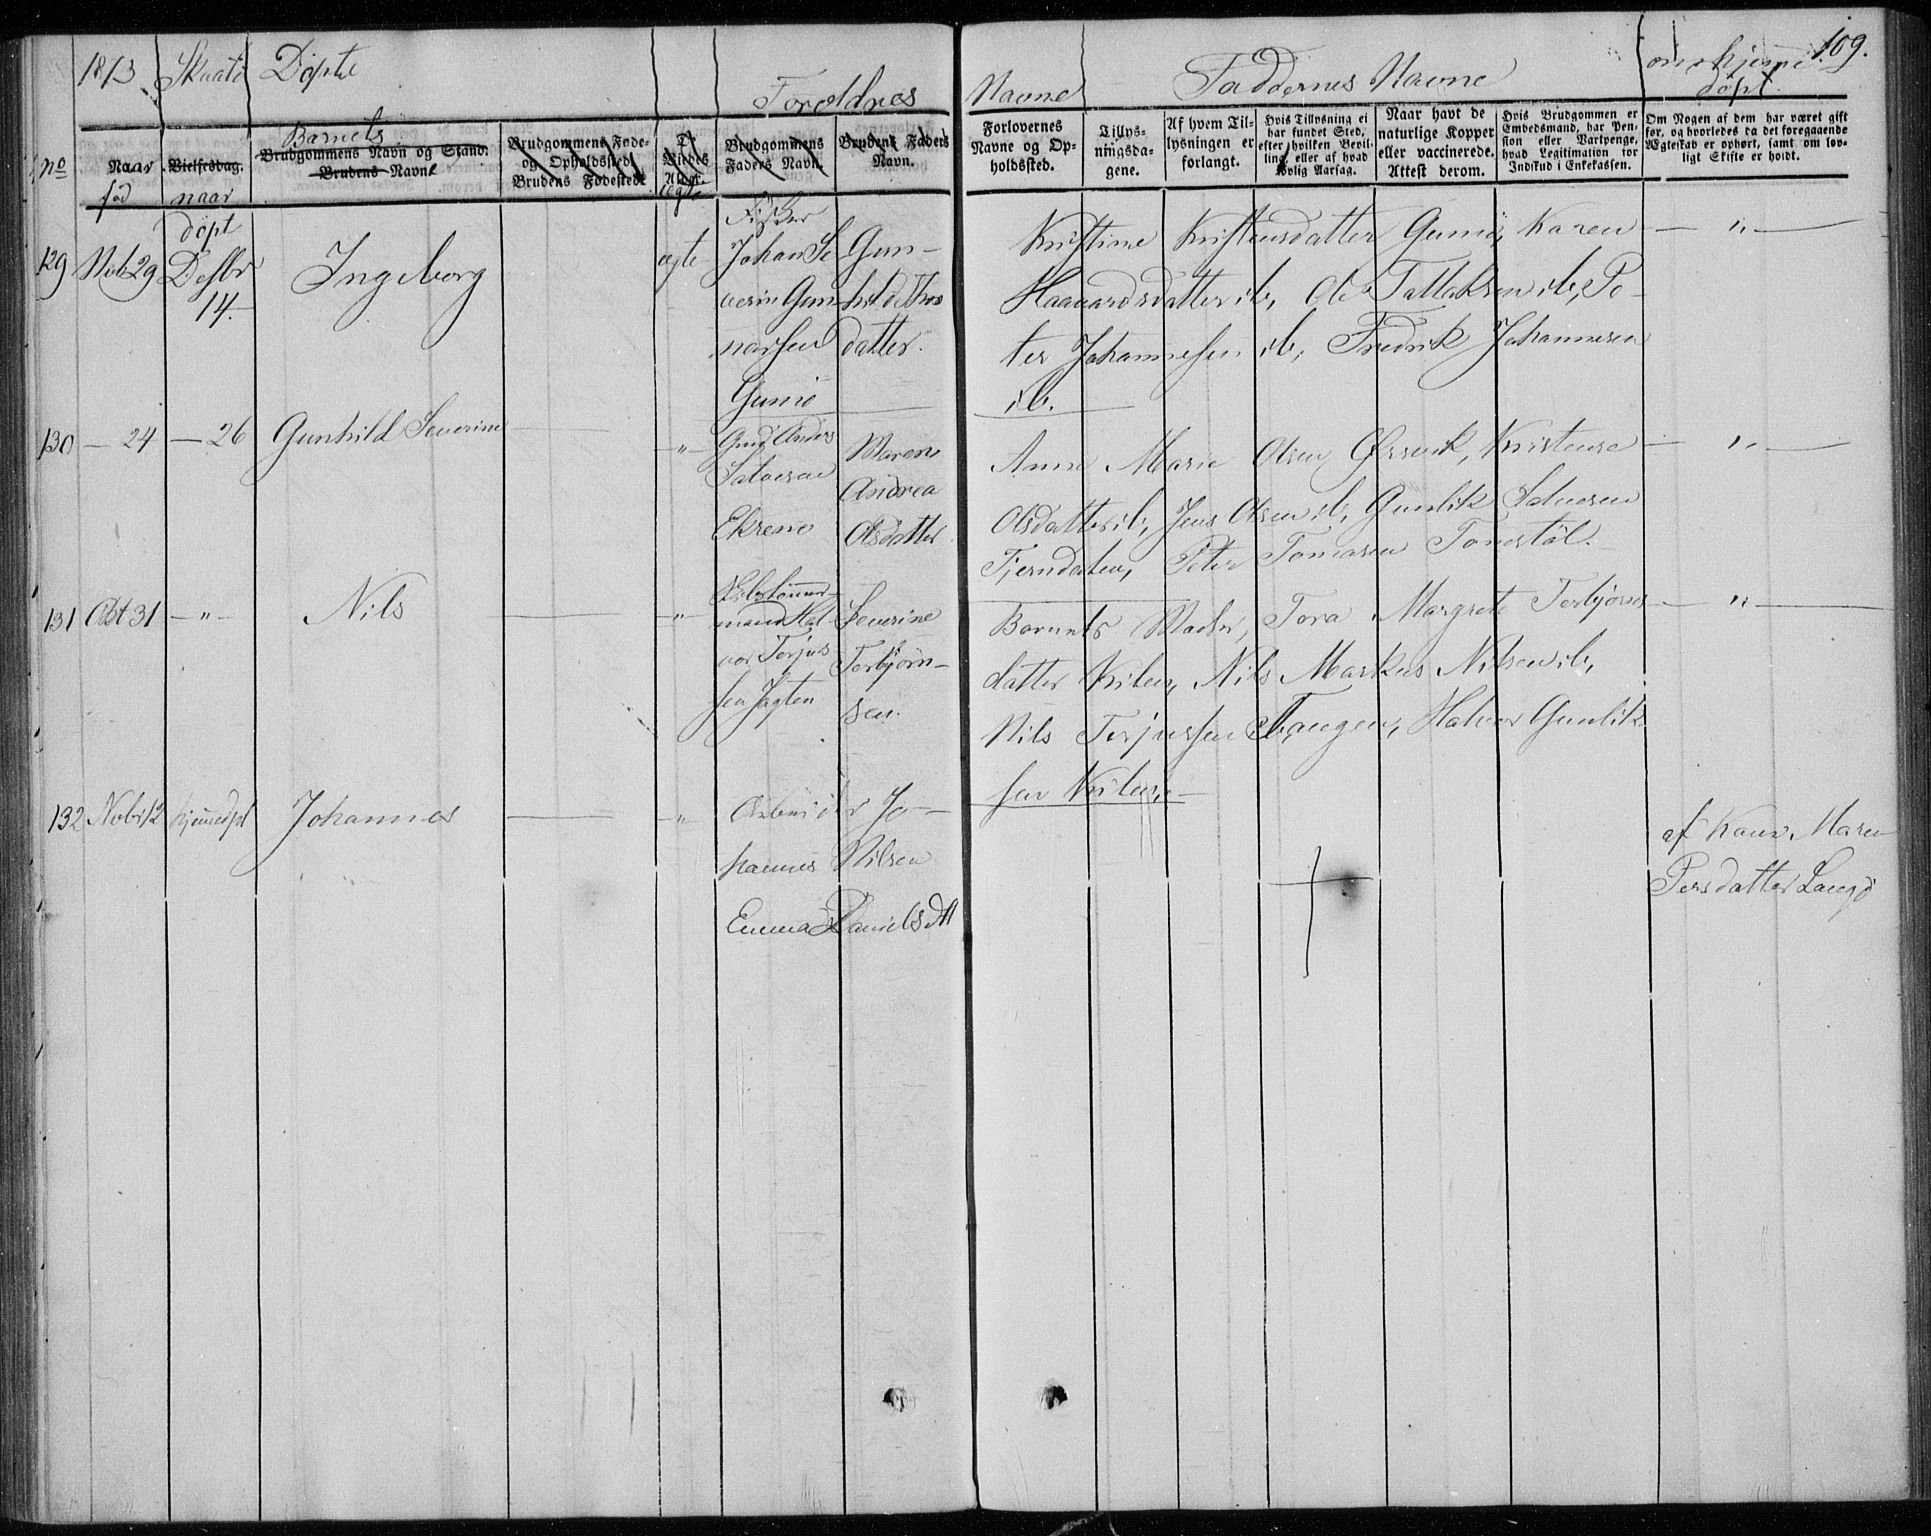 1873 Skaatö Döpte
Forældres Navne
Faddernes Navne
om hjemme döpt.
109.
No
Naar
fød
Vielsesdag.
naar
döpt
Barnets
Brudgommens Navn og Stand.
Brudens Navn
Brudgommens Føde-
og Opholdssted.
Brudens Fødested.
Brudgommens
Faders Navn.
Brudens Faders
Navn.
Forlovernes
Navne og Op-
holdssted.
Tillys-
ningsda-
gene.
Af hvem Til-
lysningen er
forlangt.
Hvis Tillysning ei
har fundet Sted,
efter hvilken Bevil-
ling, eller af hvad
lovlig Aarsag.
Naar havt de
naturlige Kopper
eller vaccinerede.
Attest derom.
Hvis Brudgommen er
Embedsmand, har Pen-
sion eller Vartpenge,
hvad Legitimation for
Indskud i Enkekassen.
Om Nogen af dem har været gift
før, og hvorledes da det foregaaende
Ægteskab er ophørt, samt om lov-
ligt Skifte er holdt.
129 Nvb 29 Desbr 14. Ingeborg ægte
Fisker
Johan Se
verin Gun
narsen
Gumö
Gun-
hilde Thor
datter.
Kristine Kristensdatter Gumö, Karen
Haavardsdatter ib, Ole Tallaksen ib, Pe-
ter Johannesen ib, Fredrik Johannesen
ib.
— " —
130 — 24 — 26 Gunhild Severine — "
Gmd Anders
Salvesen
Ekrene
Maren
Andrea
Olsdatter
Anne Marie Olsen Örsvik, Kristense
Olsdatter ib, Jens Olsen ib, Gunlik Salvesen
Tjerndalen, Peter Tomasen Tonstöl.
— " —
131 Obt 31 — " — Nils — "
mand Hal
vor Terjus
sen Jagten
Severine
Terbjörn-
sen.
Barnets Moder, Tora Margrete Terbjörns
datter Kilen, Nils Markus Nilsen ib,
Nils Terjussen Tangen, Halvor Gunlik
sen Kilen.
— " —
132 Nvbr 12 hjemdpt Johannes — "
Arbeider Jo-
hannes Nilsen
Emma Danielsdtt
af Kone Maren
Persdatter Langö